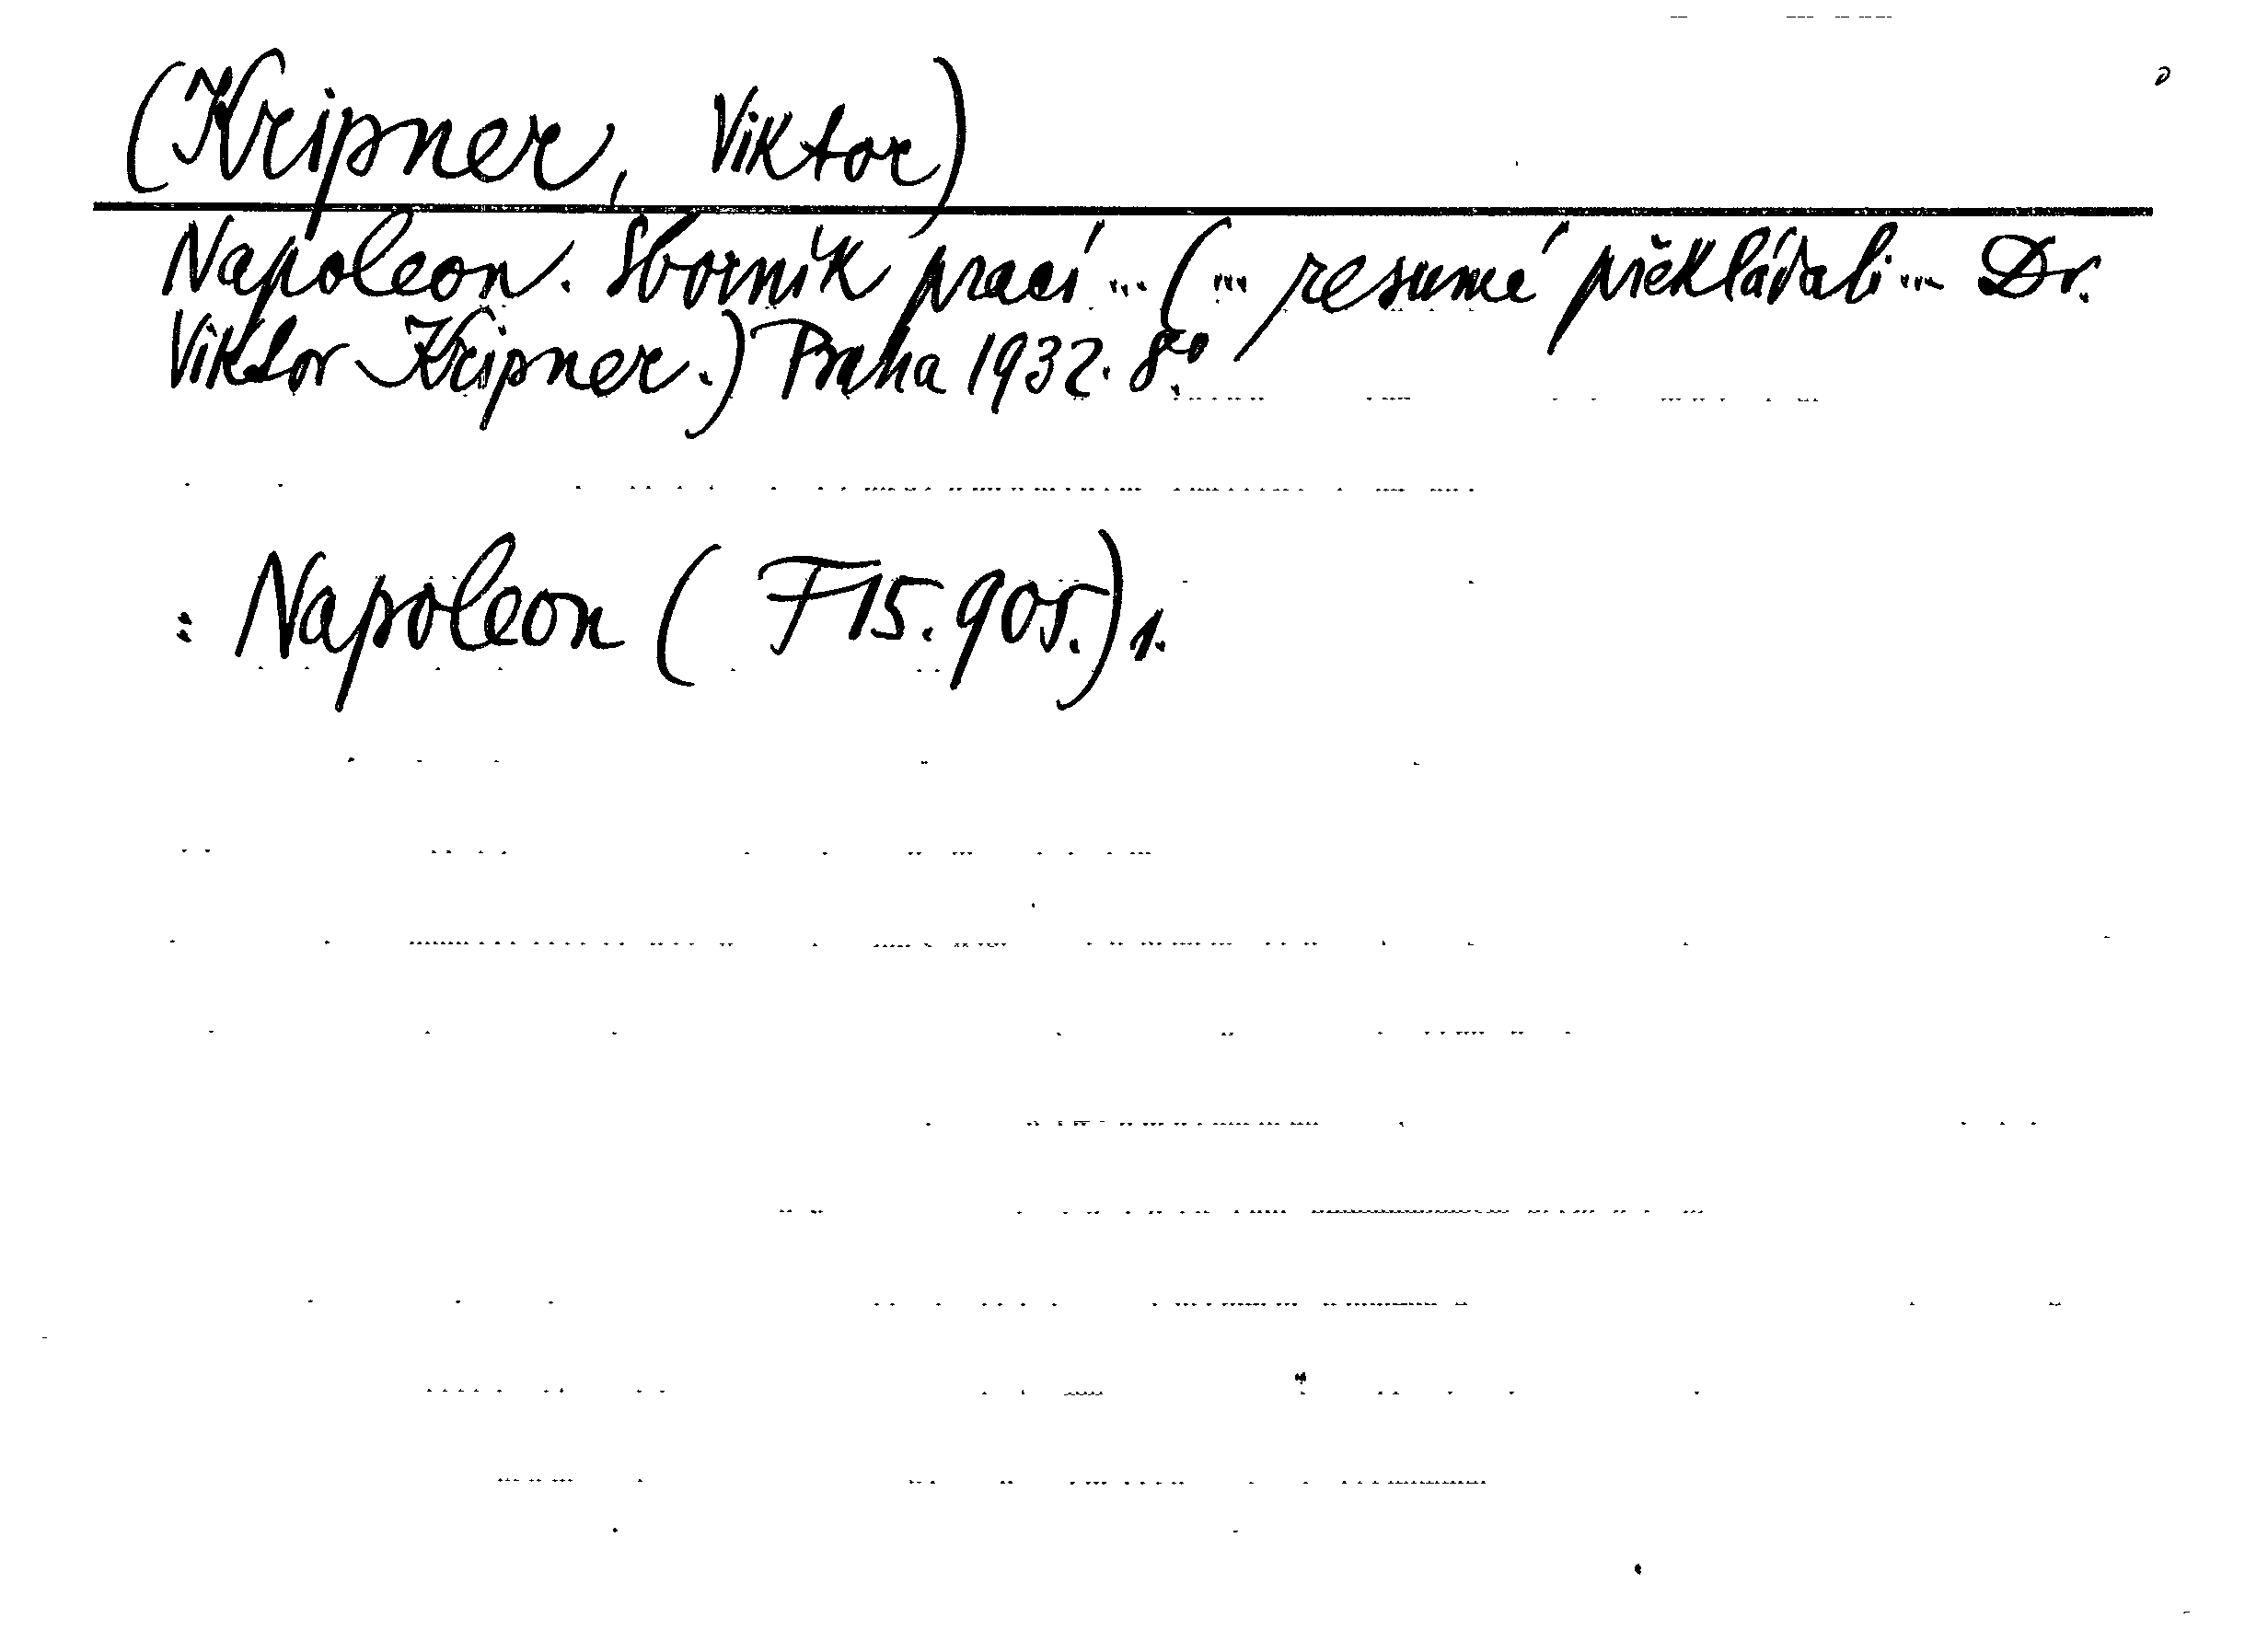 (Kripner, Viktor)
Napoleon. Sborník prací ... (... resumé překládali ... Dr.
Viktor Kripner.) Praha 1932. 8°.
: Napoleon (F 15.905.) 1.